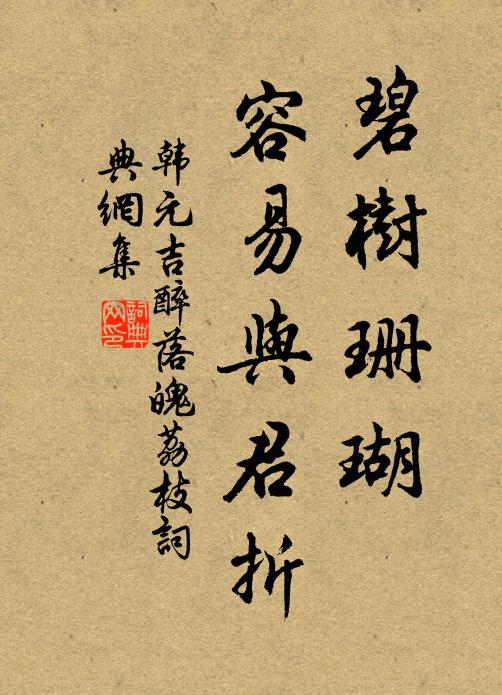 碧樹珊瑚
容易與君折
韩元吉醉落魄荔枝詞
典網集
詞典網印